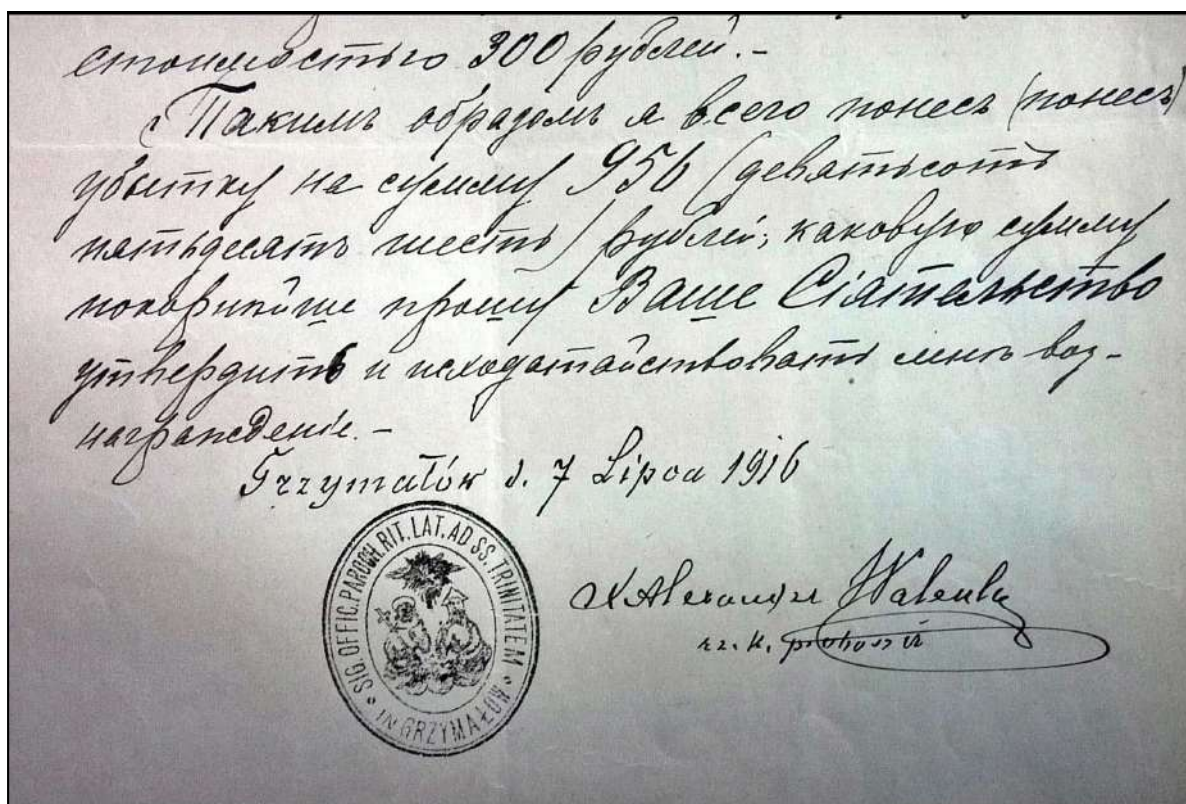 стоимостью 300 рублей. -
Такимъ образомъ я всего понесъ (понесъ)
убытку на сумму 956 (девятьсотъ
пятьдесятъ шесть) рублей, каковую сумму
покорнѣйше прошу Ваше Сіятельство
утвердить и исходатайствовать мнѣ воз-
награжденіе. -
Grzymałów d. 7 Lipca 1916
SIG. OFFIC. PAROCH. RIT. LAT. AD SS. TRINITATEM
IN GRZYMAŁÓW
X Alexander
rz. k. proboszcz